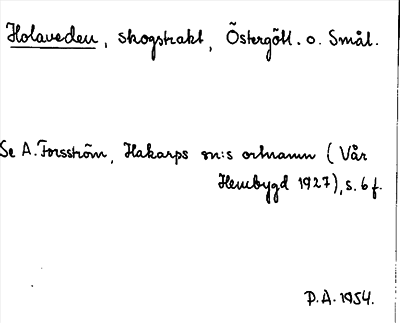 Holaveden, skogstrakt, Östergötl. o. Smål.
Se A. Forsström, Hakarps sn:s ortnamn (Vår
Hembygd 1927), s. 6 f.
D.A. 1954.